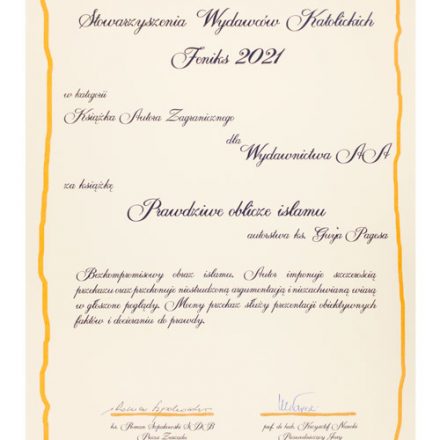 Stowarzyszenia Wydawców Katolickich
Feniks 2021
w kategorii
Książka Autora Zagranicznego
dla
Wydawnictwa AA
za książkę
Prawdziwe oblicze islamu
autorstwa ks. Guya Pagesa
Bezkompromisowy obraz islamu. Autor imponuje szczerością
przekazu oraz przekonuje niestrudzoną argumentacją i niezachwianą wiarą
w głoszone poglądy. Mocny przekaz służy prezentacji obiektywnych
faktów i docieraniu do prawdy.
ks. Roman Szpakowski SDB
Prezes Zarządu
prof. dr hab. Krzysztof Narecki
Przewodniczący Jury